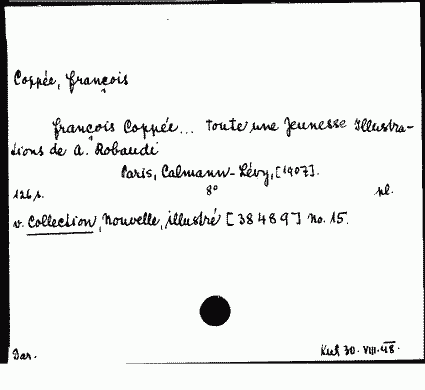 Coppée, François
François Coppée... Toute une Jeunesse Illustra-
tions de A. Robaudi
Paris, Calmann-Lévy, [1907].
126 p. 8° pl.
v. Collection, Nouvelle, illustré [38489] No. 15.
Dar. 30.VIII.48.